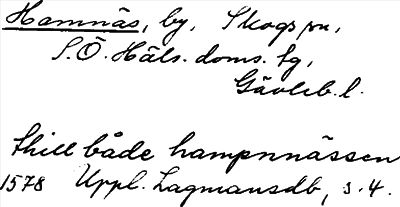 Hamnäs, by, Skogs sn,
S.Ö. Häls. doms. tg,
Gävleb. l.
thill både hampnnässen
1578 Uppl. Lagmansdb, s. 4.